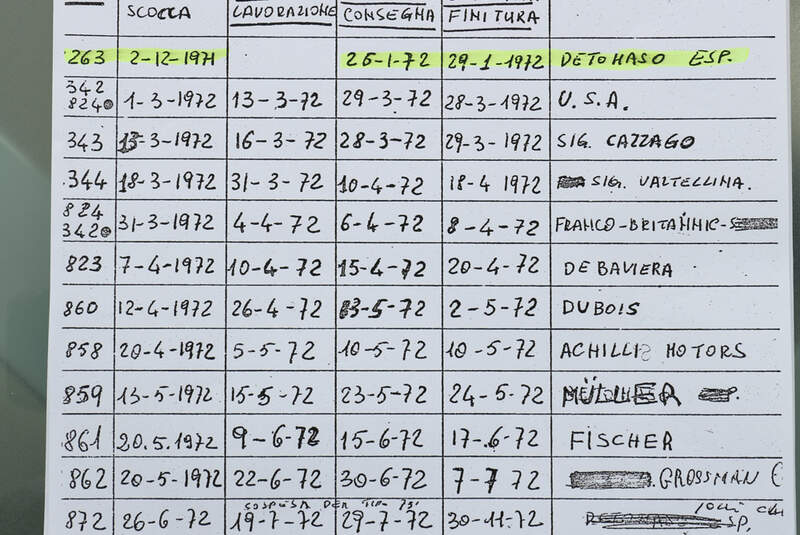 SCOCCA LAVORAZIONE CONSEGNA FINITURA
263 2-12-1971 26-1-72 29-1-1972 DETOMASO ESP.
342
824 1-3-1972 13-3-72 29-3-72 28-3-1972 U.S.A.
343 13-3-1972 16-3-72 28-3-72 29-3-1972 SIG. CAZZAGO
344 18-3-1972 31-3-72 10-4-72 18-4 1972 SIG. VALTELLINA.
824
342 31-3-1972 4-4-72 6-4-72 8-4-72 FRANCO-BRITANNIC-
823 7-4-1972 10-4-72 15-4-72 20-4-72 DE BAVIERA
860 12-4-1972 26-4-72 3-5-72 2-5-72 DUBOIS
858 20-4-1972 5-5-72 10-5-72 10-5-72 ACHILLIS MOTORS
859 13-5-1972 15-5-72 23-5-72 24-5-72 MÜLLER
861 20.5.1972 9-6-72 15-6-72 17-6-72 FISCHER
862 20-5-1972 22-6-72 30-6-72 7-7 72 GROSSMAN
SOSPESA PER
872 26-6-72 19-7-72 29-7-72 30-11-72 SP.